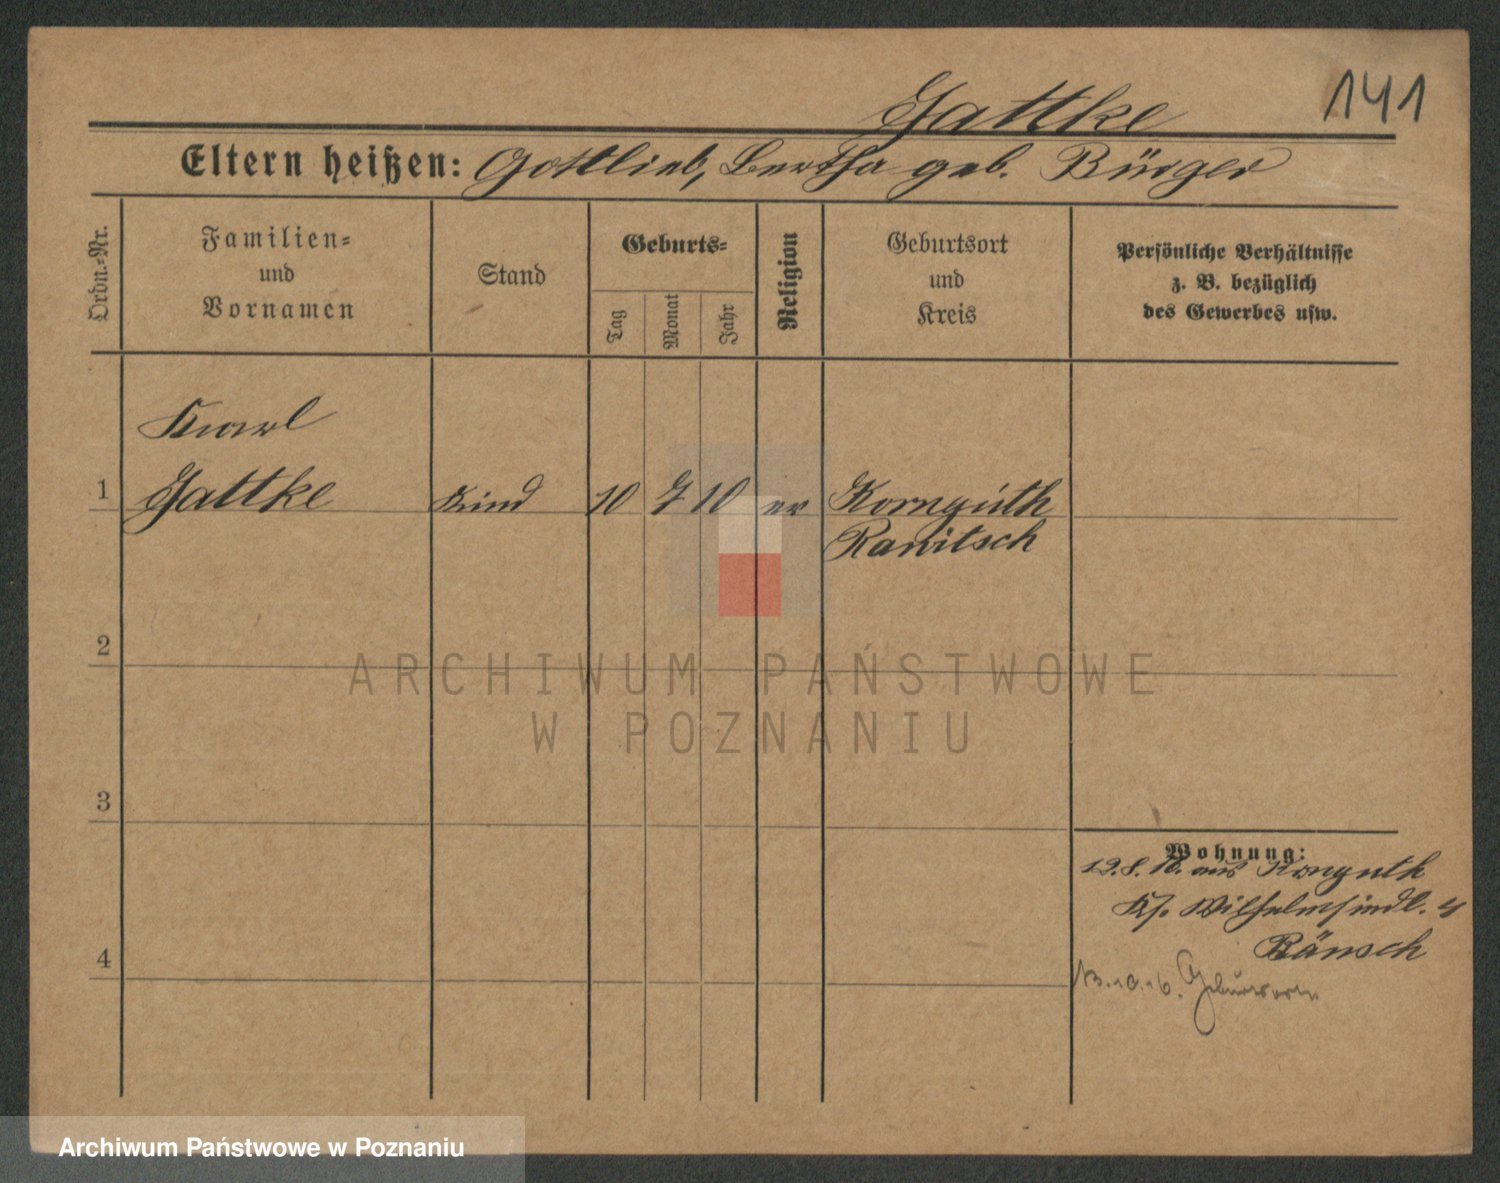 Gattke
141
Eltern heißen: Gottlieb, Bertha geb. Bürger
Ordn.-Nr.
Familien-
und
Vornamen
Stand
Geburts-
Tag
Monat
Jahr
Religion
Geburtsort
und
Kreis
Persönliche Verhältnisse
z. B. bezüglich
des Gewerbes usw.
Karl
1 Gattke Kind 10 7 10 ev Kornguth
Rawitsch
2
ARCHIWUM PAŃSTWOWE
W POZNANIU
3
Wohnung:
12.8.16. aus Kornguth
Wilhelm
Bänsch
4
13.10.16.
Archiwum Państwowe w Poznaniu